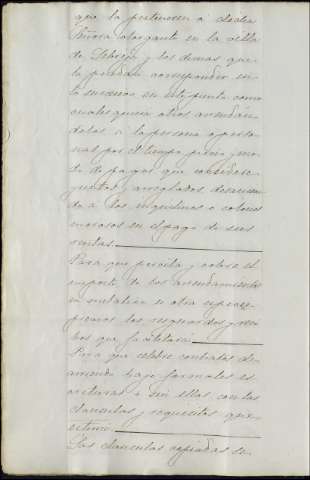 que la pertenecen a dicha
Señora otorgante en la villa
de Lebrija y los demas que
la puedan corresponder en
lo sucesivo en este punto como
cualesquiera otros arrendan
dolas a la persona o perso-
nas por el tiempo precio y mo-
do de pagar que considere
justos y arreglados desaucian
do a los inquilinos o colonos
morosos en el pago de sus
rentas.
Para que perciba y cobre el
importe de los arrendamientos
en metalico u otra especie
los resguardos y reci
bos que facilitará.
Para que celebre contratos de
arriendo bajo formales es
crituras o sin ellas con las
clausulas y requisitos que
estime.
Las clausulas copiadas se